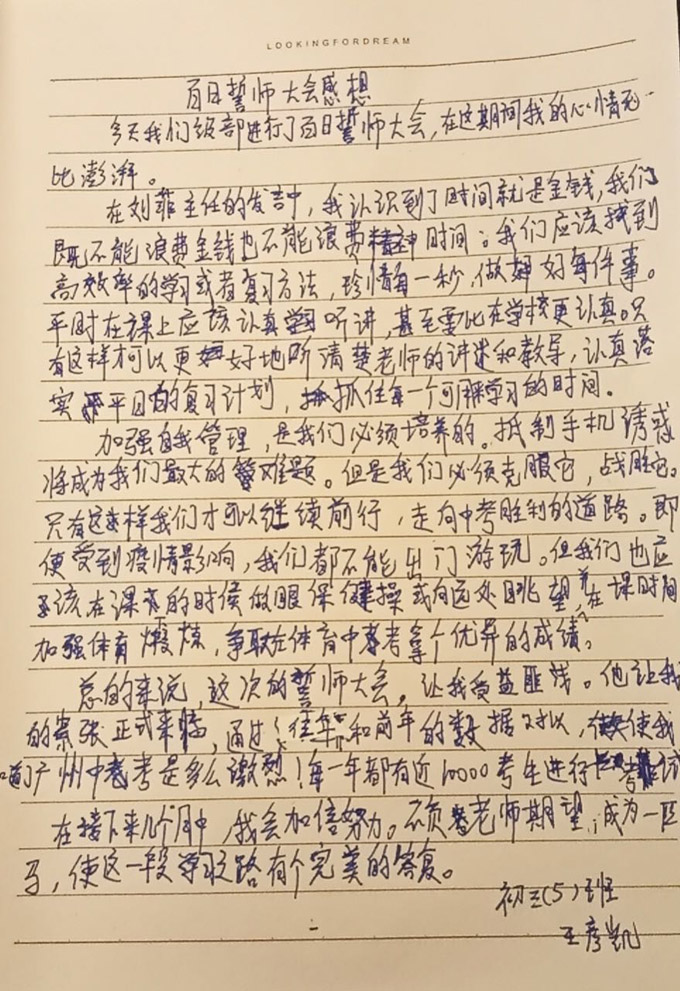 LOOKINGFORDREAM
百日誓师大会感想
今天我们级部进行了百日誓师大会,在这期间我的心情无
比澎湃。
在刘菲主任的发言中,我认识到了时间就是金钱,我们
既不能浪费金钱也不能浪费时间;我们应该找到
高效率的学习或者复习方法,珍惜每一秒,做好每件事。
平时在课上应该认真听讲,甚至要比在学校更认真。只
有这样才可以更好地听清楚老师的讲述和教导,认真落
实平日的复习计划,抓住每一个可用来学习的时间。
加强自我管理,是我们必须培养的。抵制手机诱惑
将成为我们最大的难题。但是我们必须克服它,战胜它。
只有这样我们才可以继续前行,走向中考胜利的道路。即
便受到疫情影响,我们都不能出门游玩。但我们也应
该在课间的时候做眼保健操或向远处眺望,在课时间
加强体育煅炼,争取在体育中考拿个优异的成绩。
总的来说,这次的誓师大会,让我受益匪浅。他让我
的紧张正式来临,通过往年和前年的数据对比,使我
广州中考是多么激烈!每一年都有近10000考生进行考试
在接下来几个月中,我会加倍努力。不负老师期望,成为一匹
马,使这一段学习之路有个完美的答复。
初三(5)班
王彦凯